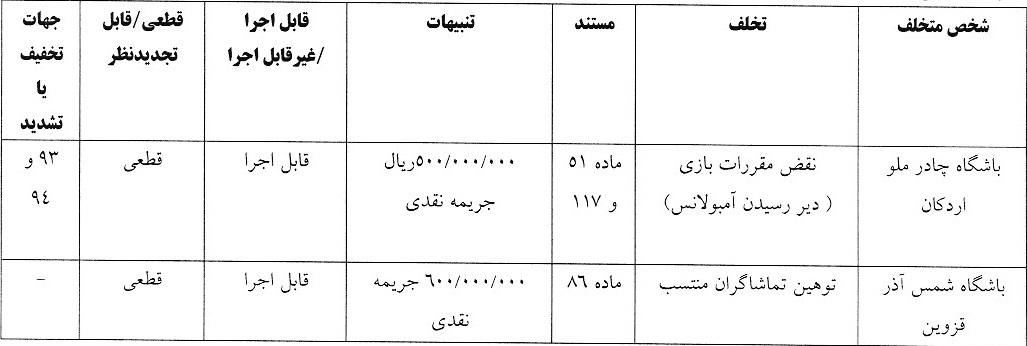 شخص متخلف	تخلف	مستند	تنبیهات	قابل اجرا /غیرقابل اجرا	قطعی/قابل تجدیدنظر	جهات تخفیف یا تشدید
باشگاه چادر ملو اردکان	نقض مقررات بازی ( دیر رسیدن آمبولانس)	ماده ٥١ و ١١٧	٥٠٠/٠٠٠/٠٠٠ریال جریمه نقدی	قابل اجرا	قطعی	٩٣ و ٩٤
باشگاه شمس آذر قزوین	توهین تماشاگران منتسب	ماده ٨٦	٦٠٠/٠٠٠/٠٠٠ جریمه نقدی	قابل اجرا	قطعی	-